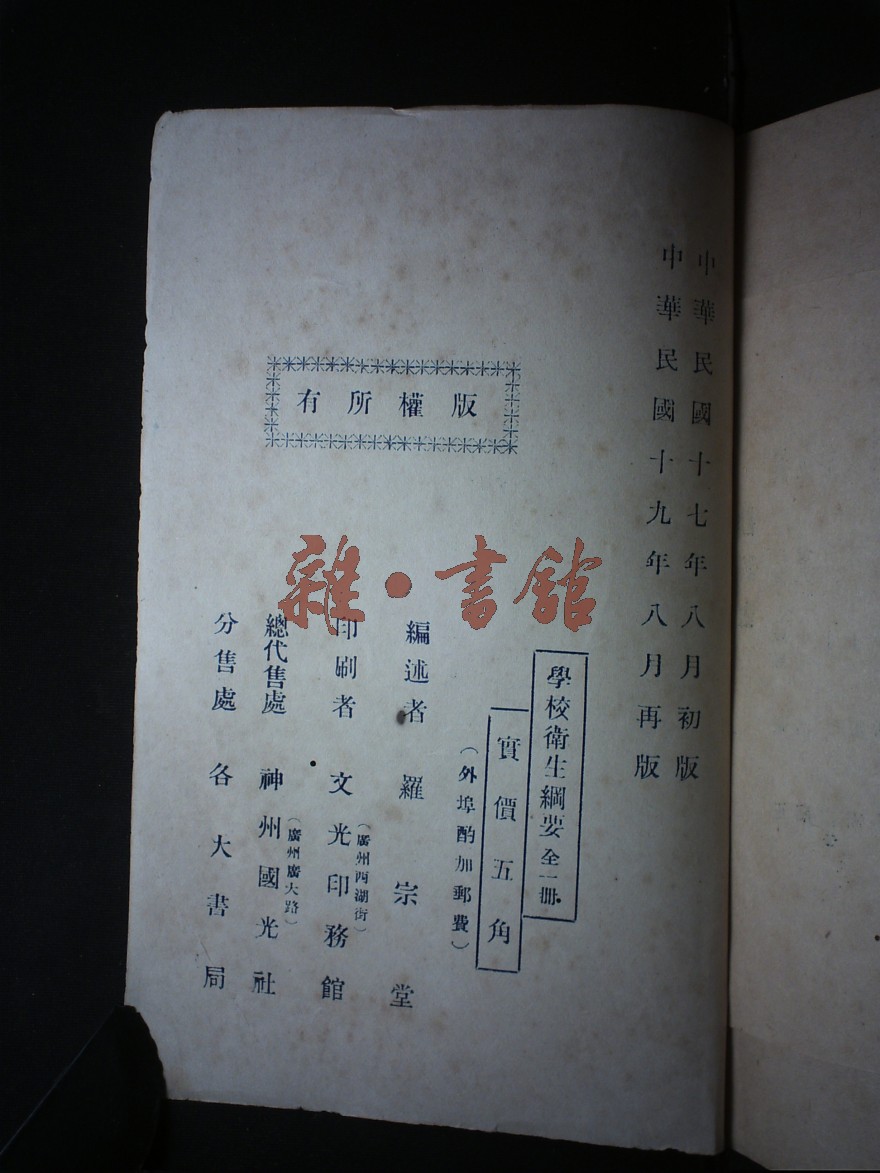 中華民國十七年八月初版
中華民國十九年八月再版
版權所有
學校衛生綱要 全一冊
實價五角
（外埠酌加郵費）
編述者 羅宗堂
印刷者 文光印務館
（廣州西湖街）
總代售處 神州國光社
（廣州廣大路）
分售處 各大書局
雜·書館